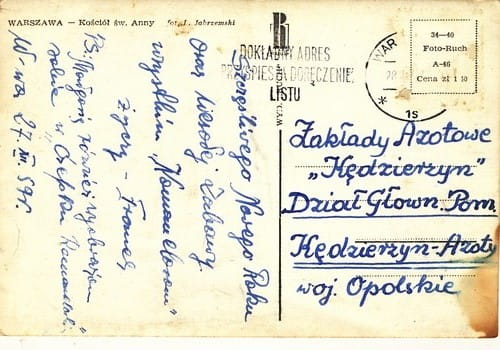 WARSZAWA – Kościół św. Anny fot. J. Jabrzemski
Szczęśliwego Nowego Roku
oraz Wesołej Zabawy
wszystkim
życzy – Franek
PS:
również
salce w "Cepku
W-wa 27 XII 59r.
DOKŁADNY ADRES
PRZYSPIESZA DORĘCZENIE
LISTU
WAR
28
15
34—40
Foto-Ruch
A-46
Cena zł 1 50
Zakłady Azotowe
"Kędzierzyn"
Dział Głown. Pom.
Kędzierzyn-Azoty
woj. Opolskie